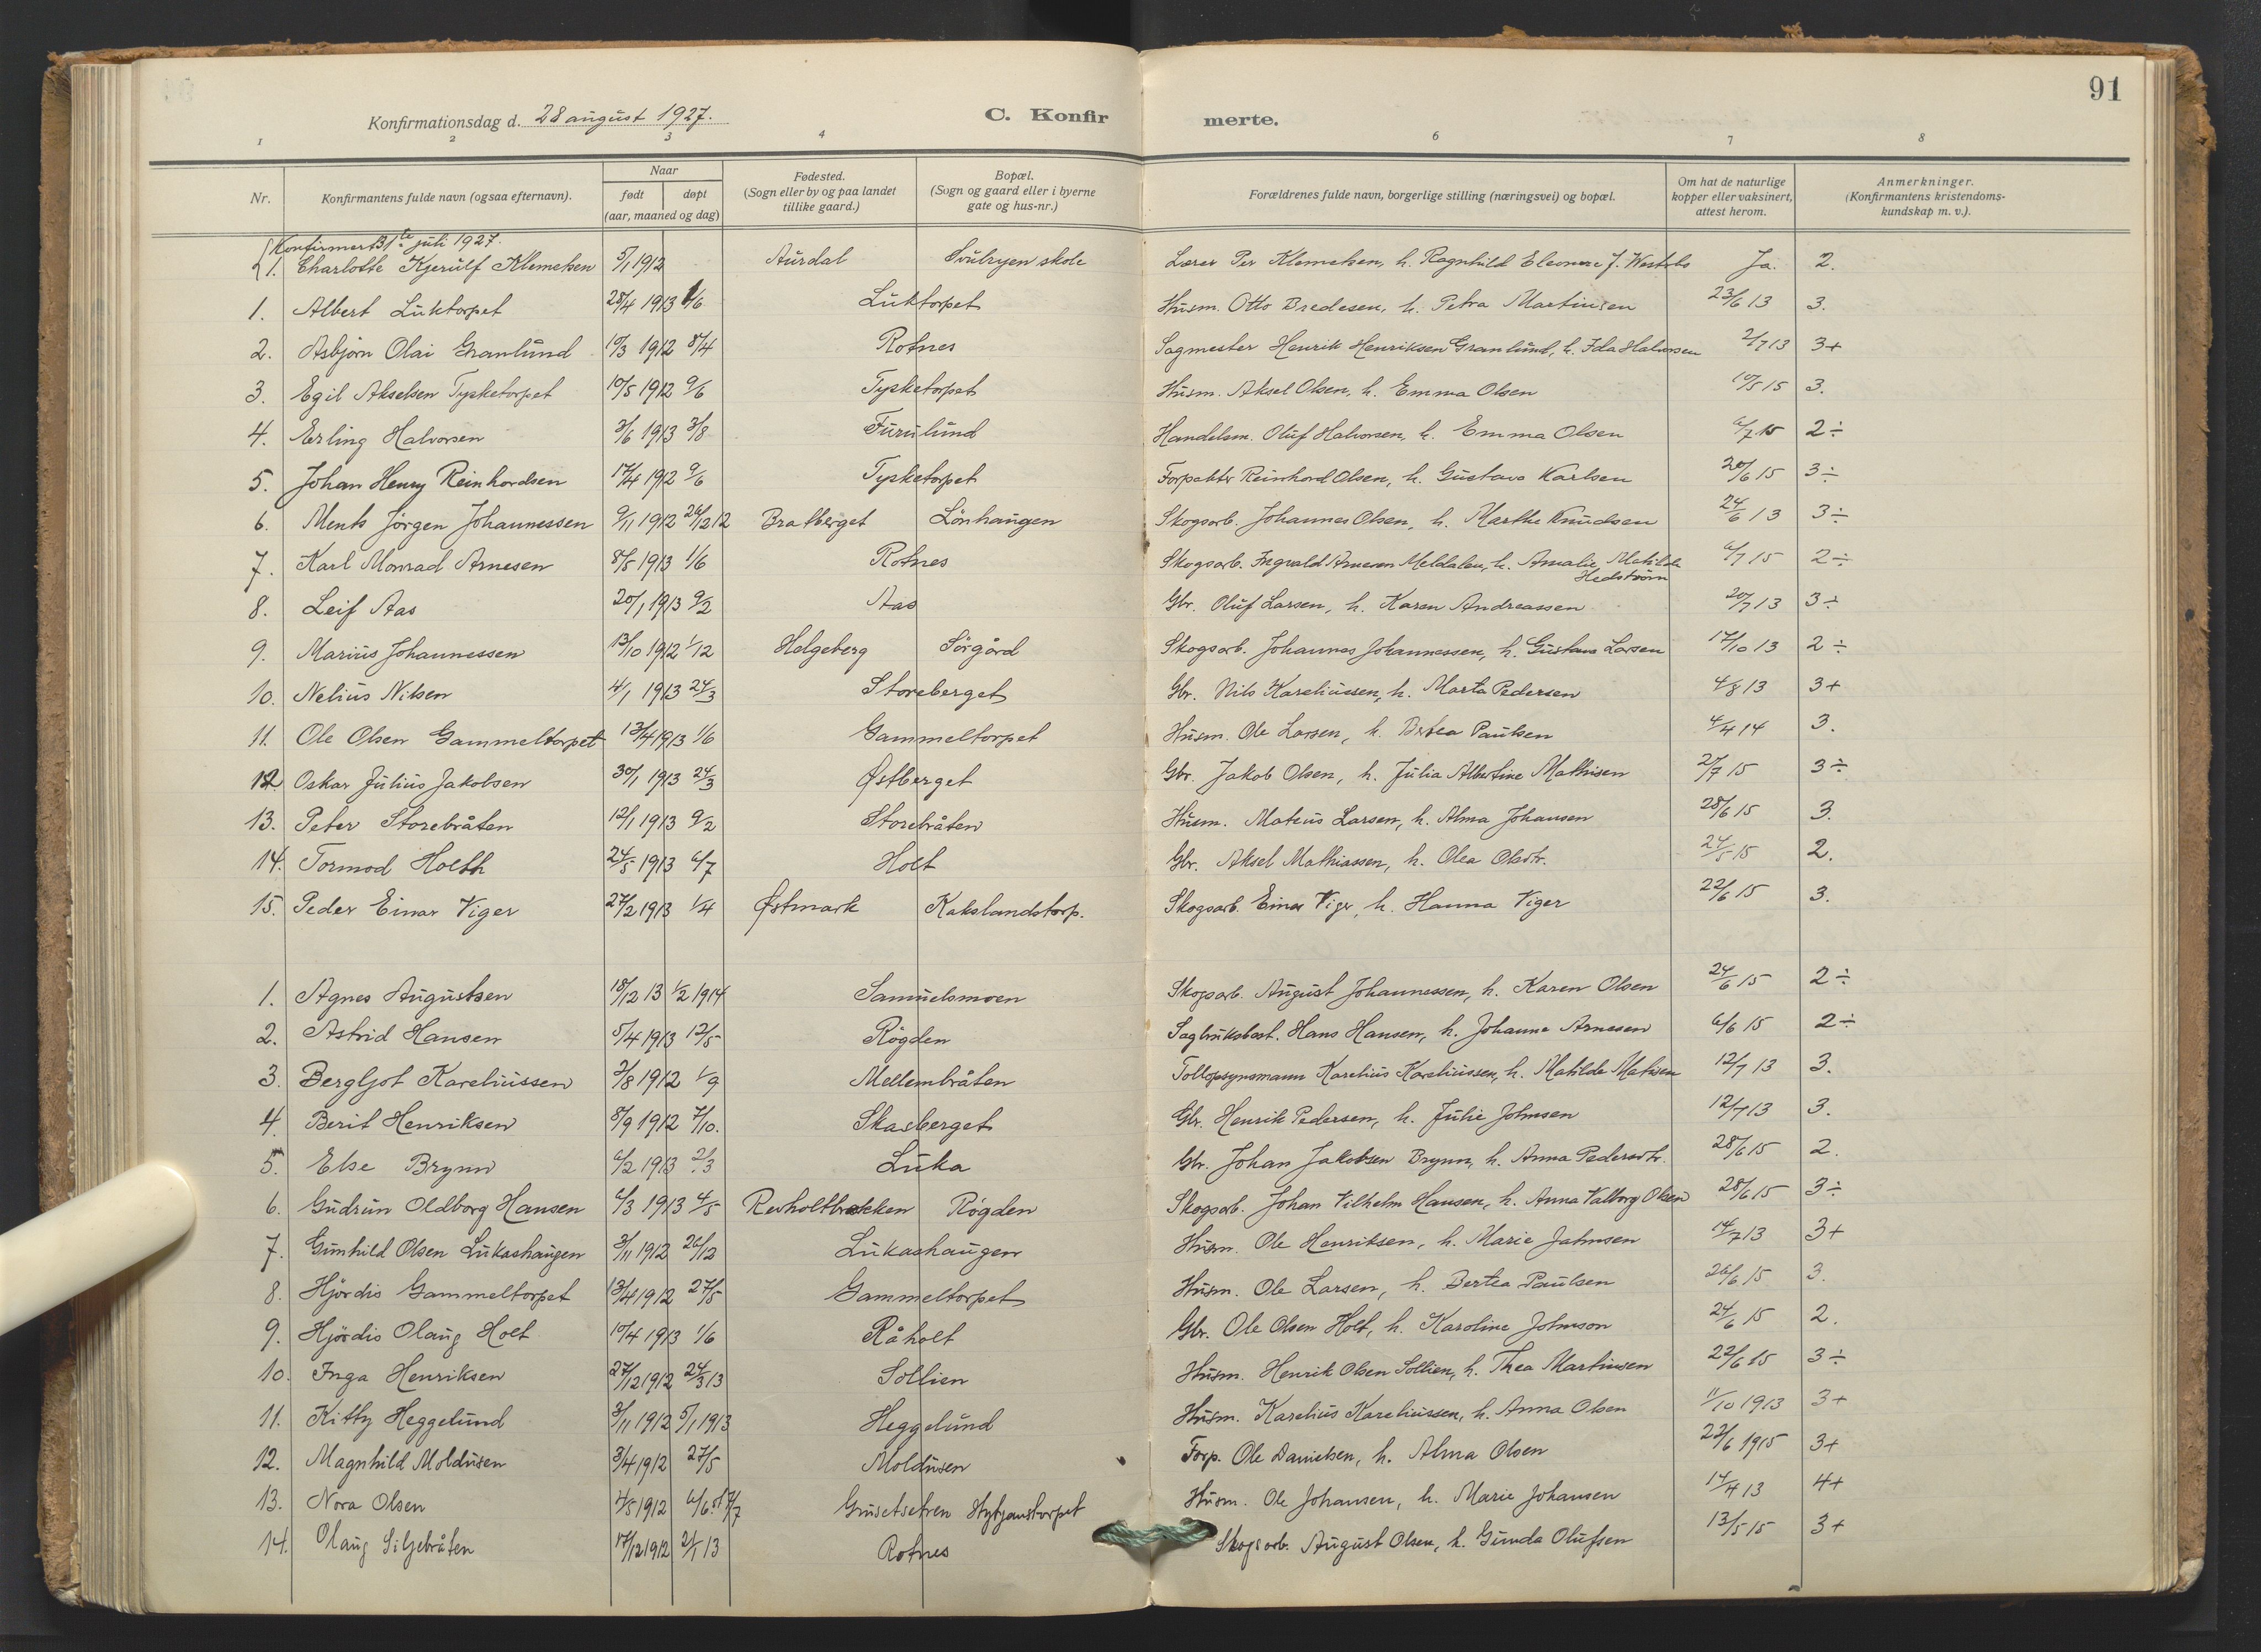 91
Konfirmationsdag d. 28 august 1927. C. Konfir merte.
1 2 3 4 6 7 8
Nr. Konfirmantens fulde navn (ogsaa efternavn). Naar født døpt (aar, maaned og dag) Fødested. (Sogn eller by og paa landet tillike gaard.) Bopæl. (Sogn og gaard eller i byerne gate og hus-nr.) Forældrenes fulde navn, borgerlige stilling (næringsvei) og bopæl. Om hat de naturlige kopper eller vaksinert, attest herom. Anmerkninger. (Konfirmantens kristendoms-kundskap m. v.).
Konfirmert 31te juli 1927.
1. Charlotte Kjerulf Klemetsen 5/1 1912 Aurdal Svulryen skole Lærer Per Klemetsen, h. Ragnhild Eleonore J. Westebo Ja. 2.
1. Albert Luktorpet 28/4 1913 1/6 Luktorpet Husm. Otto Bredesen, h. Petra Martinsen 23/6 13 3.
2. Asbjørn Olai Granlund 10/3 1912 8/4 Rotnes Sagmester Henrik Henriksen Granlund, h. Ida Halvorsen 2/7 13 3+
3. Egil Akselsen Tysketorpet 10/5 1912 9/6 Tysketorpet Husm. Aksel Olsen, h. Emma Olsen 10/5 15 3.
4. Erling Halvorsen 3/6 1913 3/8 Furulund Handelsm. Oluf Halvorsen, h. Emma Olsen 6/7 15 2÷
5. Johan Henry Reinhardsen 17/4 1912 9/6 Tysketorpet Forpakter Reinhard Olsen, h. Gustava Karlsen 20/6 15 3÷
6. Ments Jörgen Johannessen 9/11 1912 26/12 12 Bratberget Lönhaugen Skogsarb. Johannes Olsen, h. Marthe Knudsen 24/6 13 3÷
7. Karl Monrad Arnesen 8/5 1913 1/6 Rotnes Skogsarb. Ingvald Arnesen Meldalen, h. Amalie Matilde Hedström 6/7 15 2÷
8. Leif Aas 20/1 1913 9/2 Aas Gbr. Oluf Larsen, h. Karen Andreassen 20/7 13 3÷
9. Marius Johannessen 13/10 1912 1/12 Helgeberg Sörgård Skogsarb. Johannes Johannessen, h. Gustava Larsen 17/10 13 2÷
10. Nelius Nilsen 4/1 1913 24/3 Storeberget Gbr. Nils Kareliussen, h. Marta Pedersen 4/8 13 3+
11. Ole Olsen Gammeltorpet 13/4 1913 1/6 Gammeltorpet Husm. Ole Larsen, h. Bertea Paulsen 4/4 14 3.
12 Oskar Julius Jakobsen 30/1 1913 24/3 Østberget Gbr. Jakob Olsen, h. Julia Albertine Mathisen 2/7 15 3÷
13. Peter Storebråten 12/1 1913 9/2 Storebråten Husm. Mateus Larsen, h. Alma Johansen 28/6 15 3.
14. Tormod Holth 24/5 1913 6/7 Holt Gbr. Aksel Mathiassen, h. Olea Olsdtr. 24/5 15 2.
15. Peder Einar Viger 27/2 1913 1/4 Østmark Kakslandstorp. Skogsarb. Einar Viger, h. Hanna Viger 22/6 15 3.
1. Agnes Augustsen 18/12 13 1/2 1914 Samuelsmoen Skogsarb. August Johannessen, h. Karen Olsen 24/6 15 2÷
2. Astrid Hansen 5/4 1913 12/5 Rögden Sagbruksbest. Hans Hansen, h. Johanne Arnesen 6/6 15 2÷
3. Bergljot Kareliussen 3/8 1912 1/9 Mellembråten Tollopsynsmann Karelius Kareliussen, h. Matilde Matisen 12/7 13 3.
4. Berit Henriksen 8/9 1912 7/10. Skasberget Gbr. Henrik Pedersen, h. Julie Johnsen 12/7 13 3.
5. Else Brynn 6/2 1913 2/3 Luka Gbr. Johan Jakobsen Brynn, h. Anna Pedersdtr. 28/6 15 2.
6. Gudrun Oldborg Hansen 6/3 1913 4/5 Revholtbrekken Rögden Skogsarb. Johan Vilhelm Hansen, h. Anna Valborg Olsen 28/6 15 3÷
7. Gunhild Olsen Lukashaugen 3/11 1912 26/12 Lukashaugen Husm. Ole Henriksen, h. Marie Jahnsen 14/7 13 3+
8. Hjördis Gammeltorpet 13/4 1912 27/5 Gammeltorpet Husm. Ole Larsen, h. Bertea Paulsen 26/6 15 3.
9. Hjördis Olaug Holt 10/4 1913 1/6 Råholt Gbr. Ole Olsen Holt, h. Karoline Johnson 24/6 15 2.
10. Inga Henriksen 27/12 1912 24/3 13 Sollien Husm. Henrik Olsen Sollien, h. Thea Martinsen 22/6 15 3÷
11. Kitty Heggelund 3/11 1912 5/1 1913 Heggelund Husm. Karelius Kareliussen, h. Anna Olsen 11/10 1913 3+
12. Magnhild Moldusen 3/4 1912 27/5 Moldusen Forp. Ole Danielsen, h. Alma Olsen 22/6 1915 3+
13. Nora Olsen 4/5 1912 Gusetsetren Husm. Ole Johansen, h. Marie Johansen 14/4 13 4+
14. Olaug Siljebråten 17/12 1912 2/1 13 Rotnes Skogsarb. August Olsen, h. Gunda Olufsen 13/5 15 3+